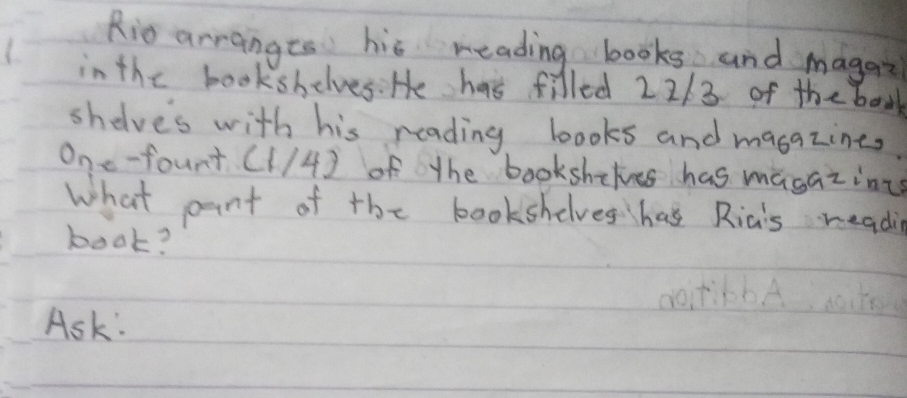 1 Rio arranges his reading books and magazi
in the bookshelves. He has filled 2 2/3 of the book
shelves with his reading books and magazines.
One-fount (1/4) of the bookshelves has magazines
What part of the bookshelves has Rio's readin
book?
Ask: